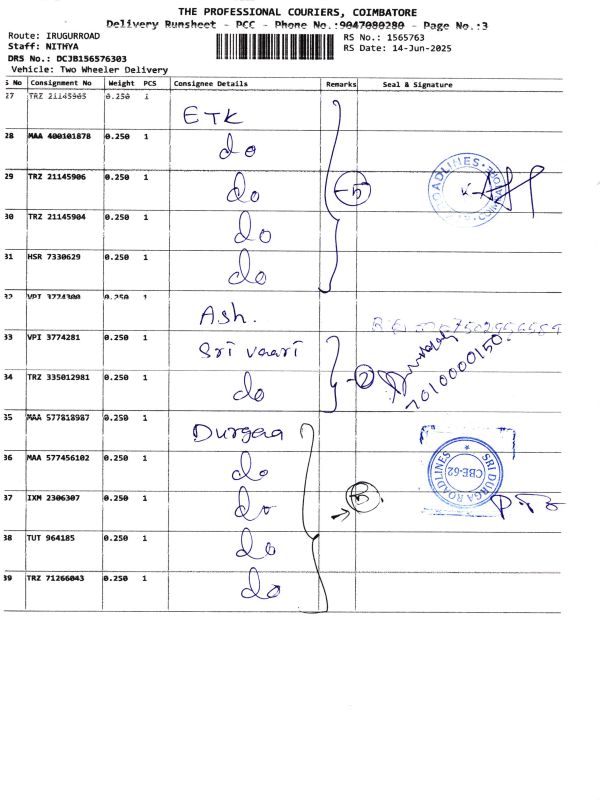 THE PROFESSIONAL COURIERS, COIMBATORE
Delivery Runsheet - PCC - Phone No.:9047080280 - Page No.:3
Route: IRUGURROAD
RS No.: 1565763
Staff: NITHYA
RS Date: 14-Jun-2025
DRS No.: DCJB156576303
Vehicle: Two Wheeler Delivery
S No Consignment No Weight PCS Consignee Details Remarks Seal & Signature
27 TRZ 21145905 0.250 1
ETK
28 MAA 400101878 0.250 1
do
29 TRZ 21145906 0.250 1
do
5
ROADLINES
30 TRZ 21145904 0.250 1
do
31 HSR 7330629 0.250 1
do
32 VPI 3774300 0.250 1
Ash.
33 VPI 3774281 0.250 1
Sri Vaari
34 TRZ 335012981 0.250 1
do
2
7010000150
35 MAA 577818987 0.250 1
Durgaa
36 MAA 577456102 0.250 1
do
SRI DURGA ROADLINES
CBE-62
37 IXM 2306307 0.250 1
do
5
38 TUT 964185 0.250 1
do
39 TRZ 71266043 0.250 1
do